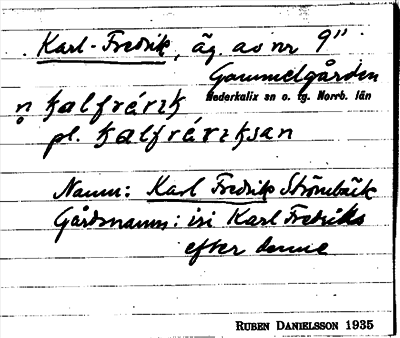 Karl-Fredrik, äg. av nr 9"
Gammelgården
Nederkalix sn o. tg. Norrb. län
pl.
Namn: Karl Fredrik Strömbäck
Gårdsnamn: isi Karl Fredriks
efter denne
RUBEN DANIELSSON 1935